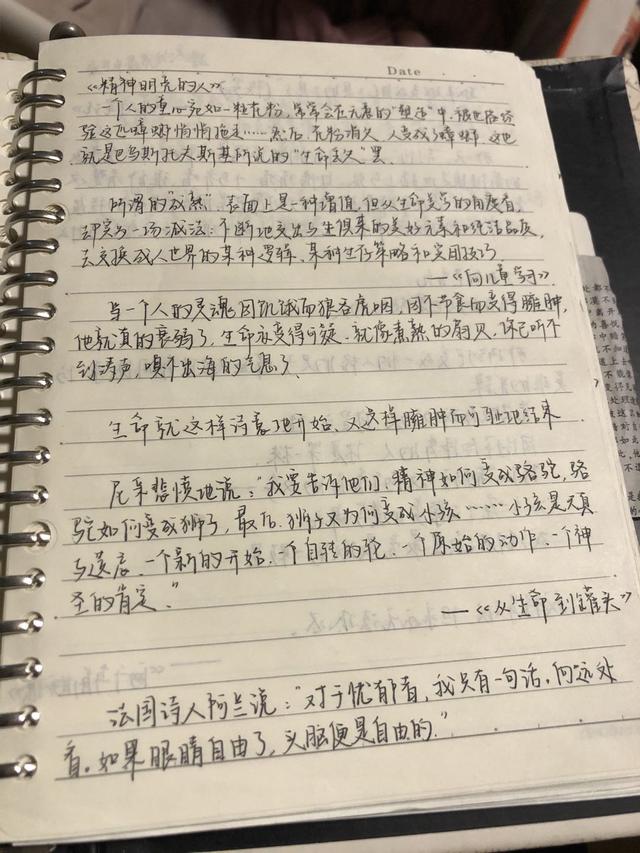 Date
《精神明亮的人》
一个人的童心宛如一粒花粉，常常会在无意的"塑造"中，被世俗经
验这匹蟑螂悄悄拖走……然后，花粉消失，人变成了蟑螂。这也
就是巴乌斯托夫斯基所说的"生命丢失"罢
所谓的"成熟"，表面上是一种增值，但从生命美学的角度看，
却实为一场减法：不断地交出与生俱来的美好元素和纯洁品质，
去交换成人世界的某种逻辑、某种生存策略和实用技巧
——《向儿童学习》
当一个人的灵魂因饥饿而狼吞虎咽，因不节食而变得臃肿，
他就真的衰弱了，生命亦变得可疑、就像煮熟的扇贝，你已听不
到涛声，嗅不出海的气息了
生命就这样诗意地开始、又这样臃肿而可耻地结束
尼采悲愤地说："我要告诉他们，精神如何变成骆驼，骆
驼如何变成狮子，最后，狮子又为何变成小孩……小孩是天真
与遗忘、一个新的开始、一个自转的轮、一个原始的动作、一个神
圣的肯定。"
——《从生命到罐头》
法国诗人阿兰说："对于忧郁者，我只有一句话，向远处
看。如果眼睛自由了，头脑便是自由的."